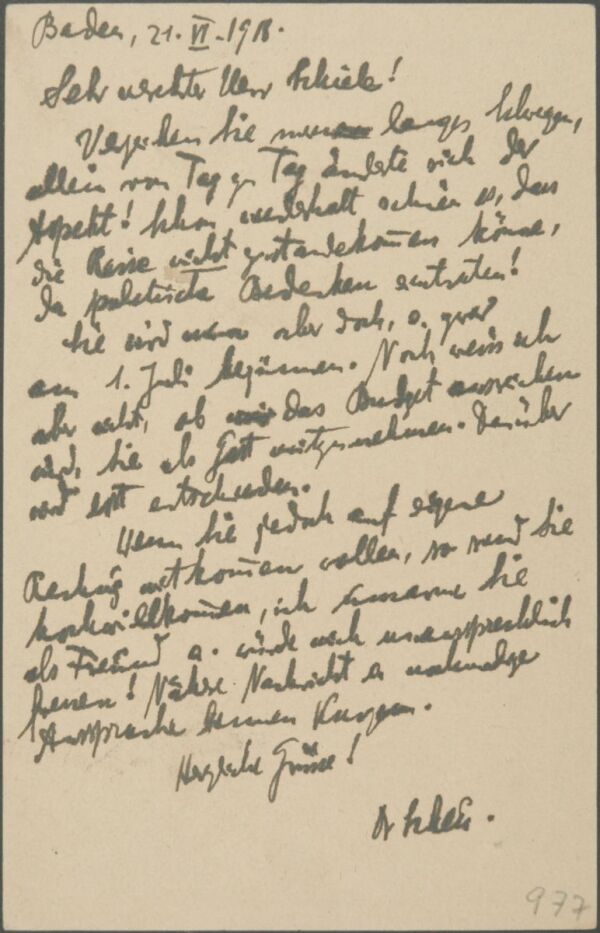 Baden, 21. VI. 1918.
Sehr werter Herr Schiele!
Verzeihen Sie mein langes Schweigen,
allein von Tag zu Tag änderte sich der
Aspekt! Schon wiederholt schien es, dass
die Reise nicht zustandekommen könne,
da politische Bedenken eintraten!
Sie wird nun aber doch, u. zwar
am 1. Juli beginnen. Noch weiss ich
aber nicht, ob das Budget ausreichen
wird, Sie als Gast mitzunehmen. Darüber
wird erst entschieden.
Wenn Sie jedoch auf eigene
Rechnung mitkommen wollen, so sind Sie
hochwillkommen, ich Sie
als Freund u. würde mich unaussprechlich
freuen! Nähere Nachricht u. nochmalige
Aussprache binnen Kurzem.
Herzliche Grüsse!
Dr
977